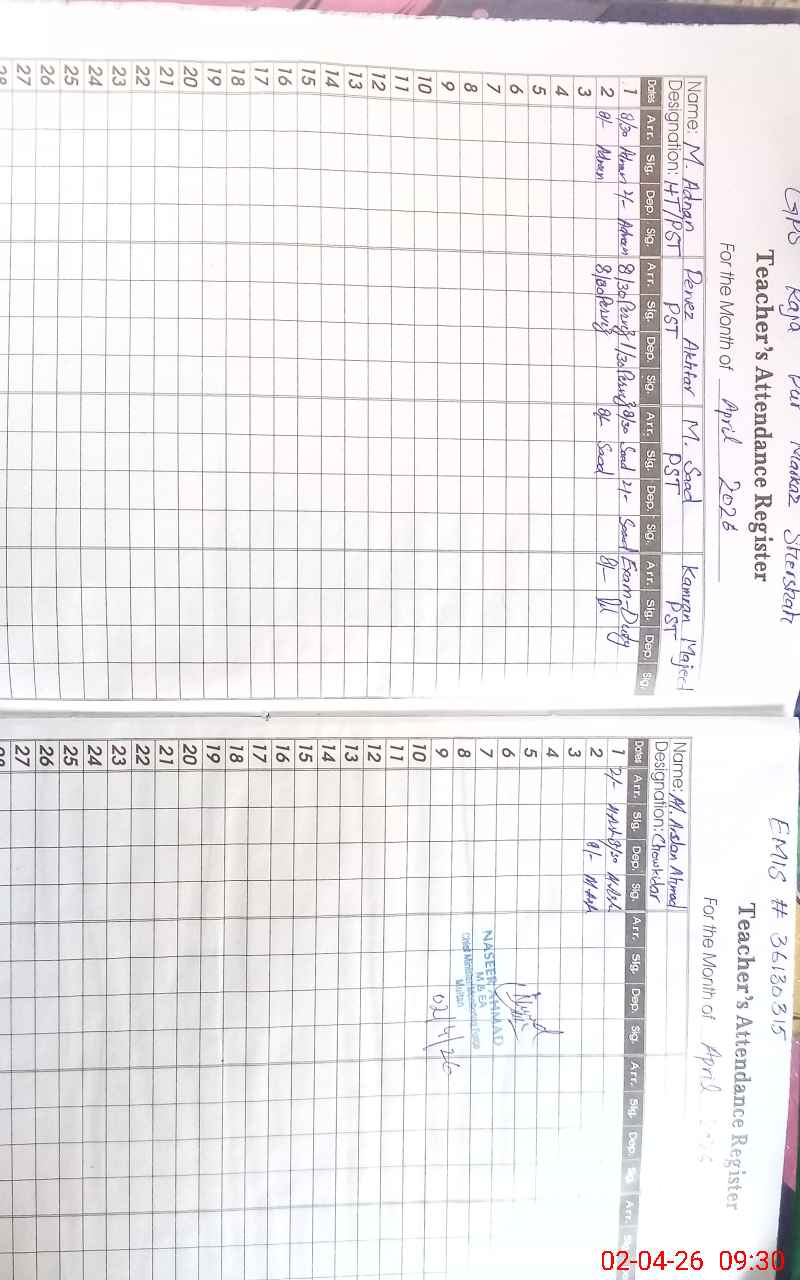 GPS Raja Pur Markaz Shershah
Teacher's Attendance Register
For the Month of April 2026
Name: M. Adnan Pervez Akhtar M. Saad Kamran Majeed
Designation: HT/PST PST PST PST
Dates Arr. Sig. Dep. Sig. Arr. Sig. Dep. Sig. Arr. Sig. Dep. Sig. Arr. Sig. Dep. Sig.
1 8/30 Adnan 2/- Adnan 8/30 Pervez 1/30 Pervez 8/30 Saad 2/- Saad Exam-Duty
2 8/- Adnan 8/30 Pervez 8/- Saad 8/-
3
4
5
6
7
8
9
10
11
12
13
14
15
16
17
18
19
20
21
22
23
24
25
26
27
28
EMIS # 36130315
Teacher's Attendance Register
For the Month of April 2026
Name: M. Arslan Ahmad
Designation: Chowkidar
Dates Arr. Sig. Dep. Sig. Arr. Sig. Dep. Sig. Arr. Sig. Dep. Sig. Arr. Sig.
1 2/- 8/30
2 8/-
3
4
5
6
7
8
9
10
11
12
13
14
15
16
17
18
19
20
21
22
23
24
25
26
27
28
NASEER AHMAD
M & EA
Multan
02/4/26
02-04-26 09:30